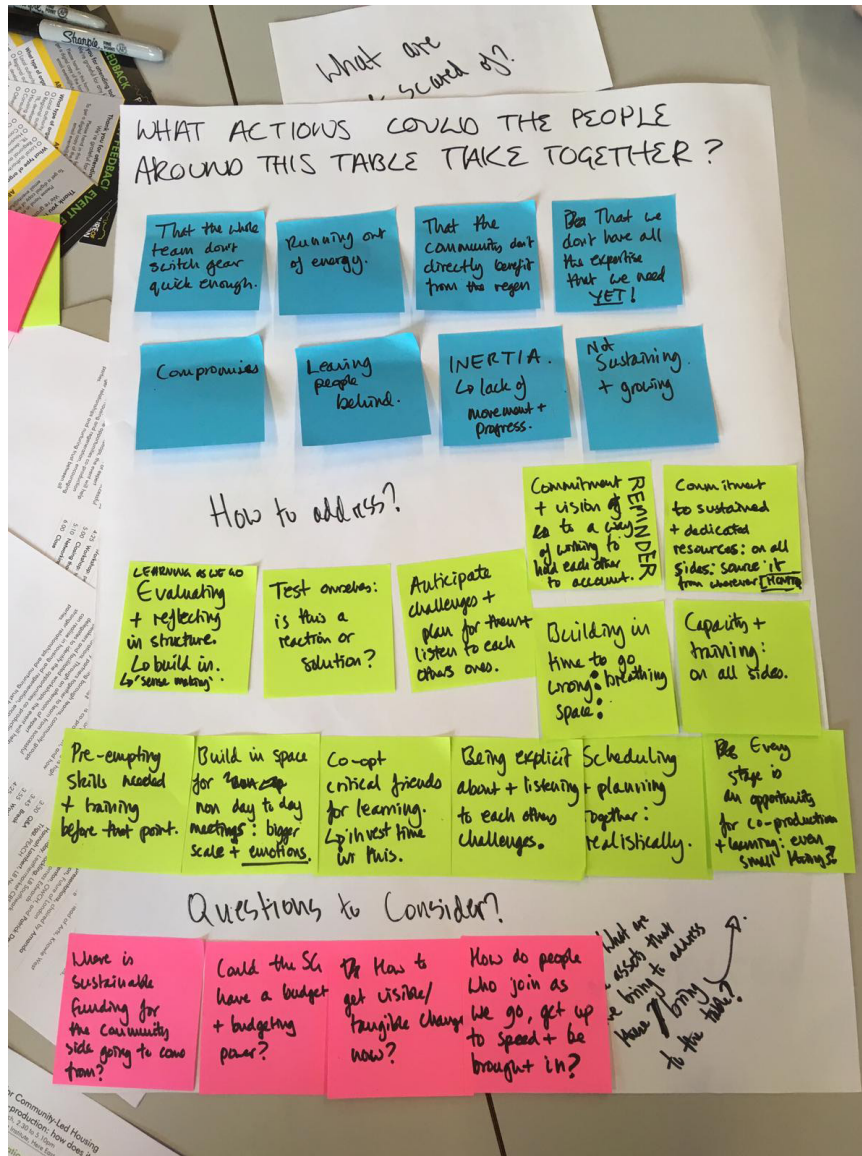 Sharpie
What are
scared of?
WHAT ACTIONS COULD THE PEOPLE
AROUND THIS TABLE TAKE TOGETHER?
That the whole
team don't
switch gear
quick enough.
Running out
of energy.
That the
community don't
directly benefit
from the regen
That we
don't have all
the expertise
that we need
YET!
Compromises
Leaving
people
behind.
INERTIA.
↳ lack of
movement +
Progress.
Not
Sustaining
+ growing
How to address?
Commitment
+ vision
to a way
of working to
hold each other
to account.
REMINDER
Commitment
to sustained
+ dedicated
resources: on all
sides: source it
from wherever
LEARNING AS WE GO
Evaluating
+ reflecting
in structure.
↳ build in.
↳ 'sense making'
Test ourselves:
is this a
reaction or
solution?
Anticipate
challenges +
plan for them +
listen to each
others ones.
Building in
time to go
wrong: breathing
space:
Capacity +
training:
on all sides.
Pre-empting
skills needed
+ training
before that point.
Build in space
for
non day to day
meetings: bigger
scale + emotions.
Co-opt
critical friends
for learning.
↳ invest time
in this.
Being explicit
about + listening
to each others
challenges.
Scheduling
+ planning
together:
realistically.
Every
stage is
an opportunity
for co-production
+ learning: even
small things?
Questions to Consider?
Where is
sustainable
funding for
the community
side going to come
from?
Could the SG
have a budget
+ budgeting
power?
How to
get visible/
tangible change
now?
How do people
who join as
we go, get up
to speed + be
brought in?
What are
assets that
we bring to address
have / bring
to the table?
EVENT
FEEDBACK
or Community-Led Housing
-production: how does it